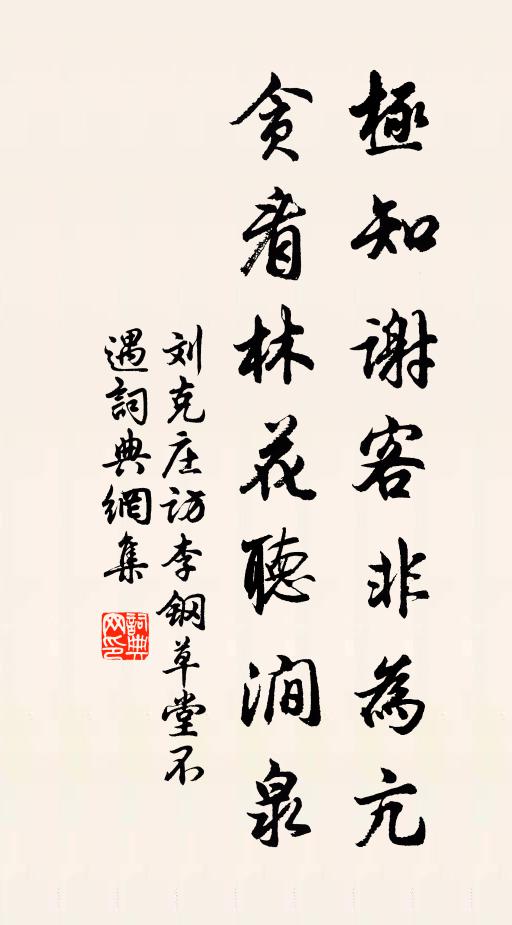 極知謝客非為亢
貪看林花聽澗泉
刘克庄訪李鋼草堂不
遇詞典網集
詞典
网印